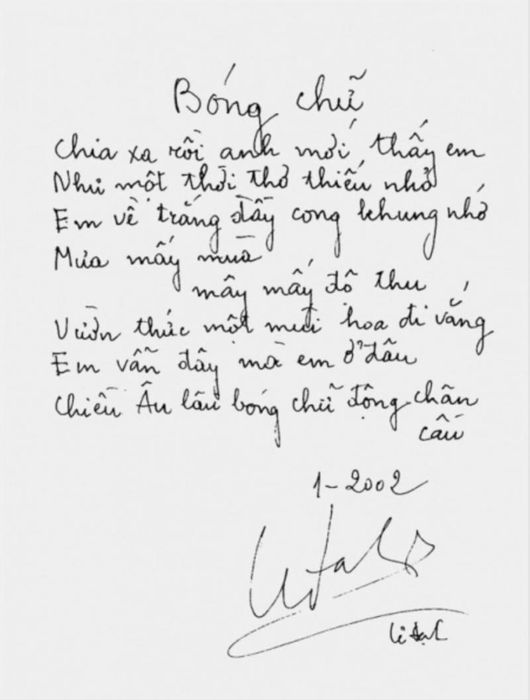 Bóng chữ
Chia xa rồi anh mới thấy em
Như một thời thơ thiếu nhỏ
Em về trắng đầy cong khung nhớ
Mưa mấy mùa
mây mấy độ thu
Vườn thức một mùi hoa đi vắng
Em vẫn đây mà em ở đâu
Chiều Âu lâu bóng chữ động chân
cầu
1-2002
Lê Đạt